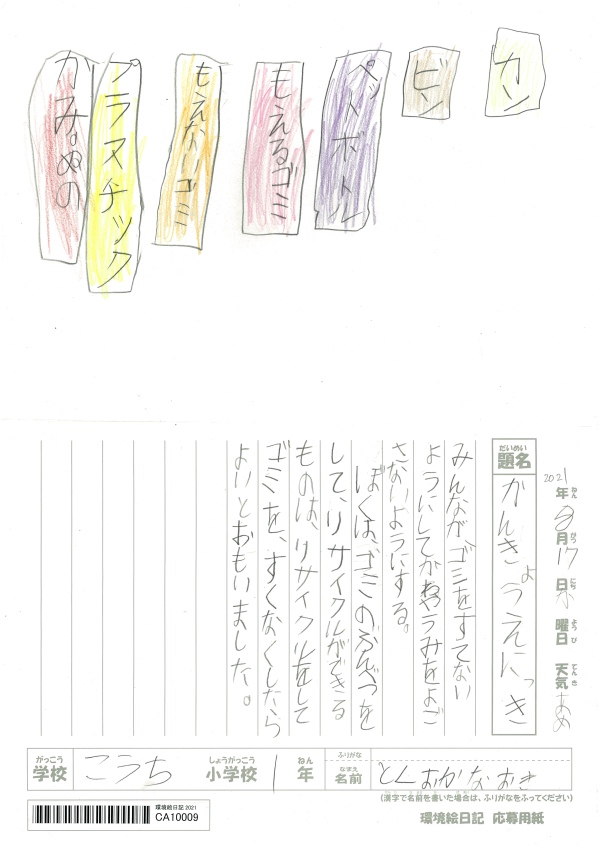 カン
ビン
ペットボトル
もえるゴミ
もえないゴミ
プラスチック
かみ。ぬの
2021年ねん 8月がつ 17日にち 火曜日ようび 天気てんき あめ
だいめい
題名
かんきょうえにっき
みんなが、ゴミをすてない
ようにしてかわやうみをよご
さないようにする。
ぼくは、ゴミのぶんべつを
して、リサイクルができる
ものは、リサイクルをして
ゴミを、すくなくしたら
よいとおもいました。
がっこう
学校
こうち
しょうがっこう
小学校
1
ねん
年
ふりがな
なまえ
名前
とくおかなおき
(漢字で名前を書いた場合は、ふりがなをふってください)
環境絵日記 2021
CA10009
環境絵日記 応募用紙